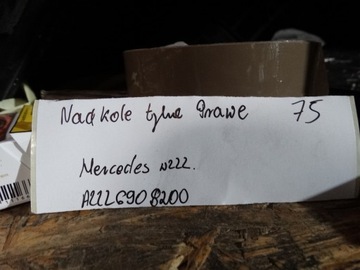 Nadkole tylne Prawe 75
Mercedes w222.
A2226908200